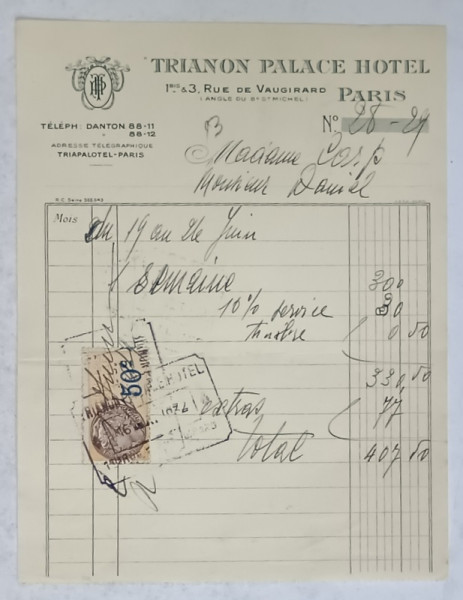 TRIANON PALACE HOTEL
1BIS & 3, RUE DE VAUGIRARD
(ANGLE DU Bd St MICHEL)
PARIS
TÉLÉPH: DANTON 88-11
" 88-12
ADRESSE TÉLÉGRAPHIQUE
TRIAPALOTEL-PARIS
No. 28-29
Madame
Monsieur Daniel
Mois
du 19 au 26 Juin
1 semaine 300
10% service 30
timbre 0 50
330 50
extras 77
Total 407 50
50c
HOTEL
TRIANON